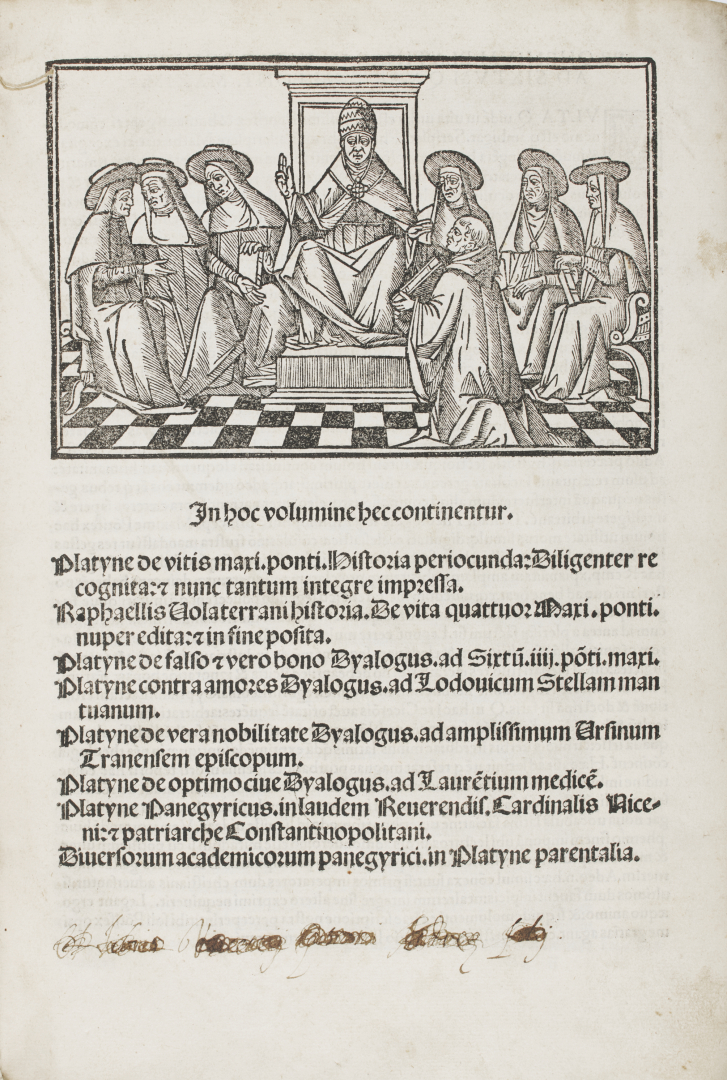 In hoc volumine hec continentur.
Platyne de vitis maxi. ponti. Historia periocunda: Diligenter re
cognita: ⁊ nunc tantum integre impressa.
Raphaellis Uolaterrani historia. De vita quattuor Maxi. ponti.
nuper edita: ⁊ in fine posita.
Platyne de falso ⁊ vero bono Dyalogus. ad Sixtū. iiij. pōti. maxi.
Platyne contra amores Dyalogus. ad Lodouicum Stellam man
tuanum.
Platyne de vera nobilitate Dyalogus. ad amplissimum Ursinum
Tranensem episcopum.
Platyne de optimo ciue Dyalogus. ad Laurētium medicē.
Platyne Panegyricus. in laudem Reuerendis. Cardinalis Nice-
ni: ⁊ patriarche Constantinopolitani.
Diuersorum academicorum panegyrici. in Platyne parentalia.